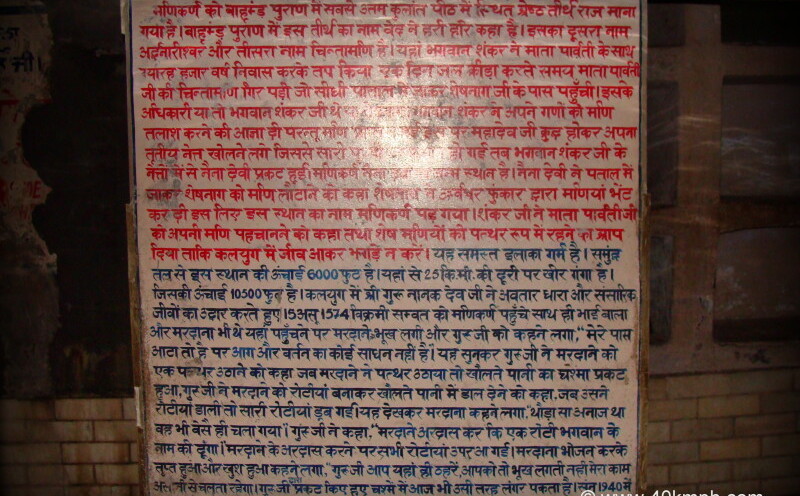 मणिकर्ण को बाह्मण्ड पुराण में सबसे उत्तम कुलांत पीठ में स्थित श्रेष्ट तीर्थ राज माना
गया है। बाह्मण्ड पुराण में इस तीर्थ का नाम वेद ने हरी हरि कहा है। इसका दूसरा नाम
अर्द्धनारीश्वर और तीसरा नाम चिन्तामणि है। यहां भगवान शंकर ने माता पार्वती के साथ
ग्यारह हजार वर्ष निवास करके तप किया एक दिन जल क्रीड़ा करते समय माता पार्वती
जी की चिन्तामणि गिर पड़ी जो सीधी पाताल में जाकर शेषनाग जी के पास पहुँची। इसके
अधिकारी या तो भगवान शंकर जी थे भगवान शंकर ने अपने गणों को मणि
तलाश करने की आज्ञा दी परन्तु मणि इस पर महादेव जी क्रुद्ध होकर अपना
तृतीय नेत्र खोलने लगे जिससे सारी गई तब भगवान शंकर जी के
नेत्रों में से नैना देवी प्रकट हुई। मणिकर्ण नैना जन्म स्थान है। नैना देवी ने पताल में
जाकर शेषनाग को मणि लौटाने को कहा शेषनाग ने फुंकार द्वारा मणियां भेंट
कर दी इस लिए इस स्थान का नाम मणिकर्ण पड़ गया। शंकर जी ने माता पार्वती जी
को अपनी मणि पहचानने को कहा तथा शेष मणियों को पत्थर रूप में रहने का श्राप
दिया ताकि कलयुग में जीव आकर झगड़े न करें। यह समस्त इलाका गर्म है। समुंद्र
तल से इस स्थान की ऊंचाई 6000 फुट है। यहां से 25 कि.मी. की दूरी पर खीर गंगा है।
जिसकी ऊंचाई 10500 फुट है। कलयुग में श्री गुरू नानक देव जी ने अवतार धारा और संसारिक
जीवों का उद्धार करते हुए। 15असु 1574 विक्रमी सम्वत को मणिकर्ण पहुँचे साथ ही भाई बाला
और मरदाना भी थे यहां पहुँचने पर मरदाने को भूख लगी और गुरू जी को कहने लगा, "मेरे पास
आटा तो है पर आग और बर्तन का कोई साधन नहीं है। यह सुनकर गुरू जी ने मरदाने को
एक पत्थर उठाने को कहा जब मरदाने ने पत्थर उठाया तो खौलते पानी का चश्मा प्रकट
हुआ, गुरू जी ने मरदाने को रोटीयां बनाकर खौलते पानी में डाल देने को कहा. जब उसने
रोटीयां डाली तो सारी रोटीयां डूब गई। यह देखकर मरदाना कहने लगा, "थोड़ा सा अनाज था
वह भी वेसे ही चला गया"। गुरू जी ने कहा, "मरदाने अरदास कर कि एक रोटी भगवान के
नाम की दूंगा। मरदाने के अरदास करते पर सभी रोटीयां उपर आ गई। मरदाना भोजन करके
तृप्त हुआ और खुश हुआ कहने लगा, "गुरू जी आप यहां ही ठहरें, आपको तो भूख लगती नहीं मेरा काम
चलता रहेगा। गुरू जी प्रकट किए हुए चश्मे में आज भी उसी तरह लंगर पकता है। सन् 1940 में
© www.40kmph.com